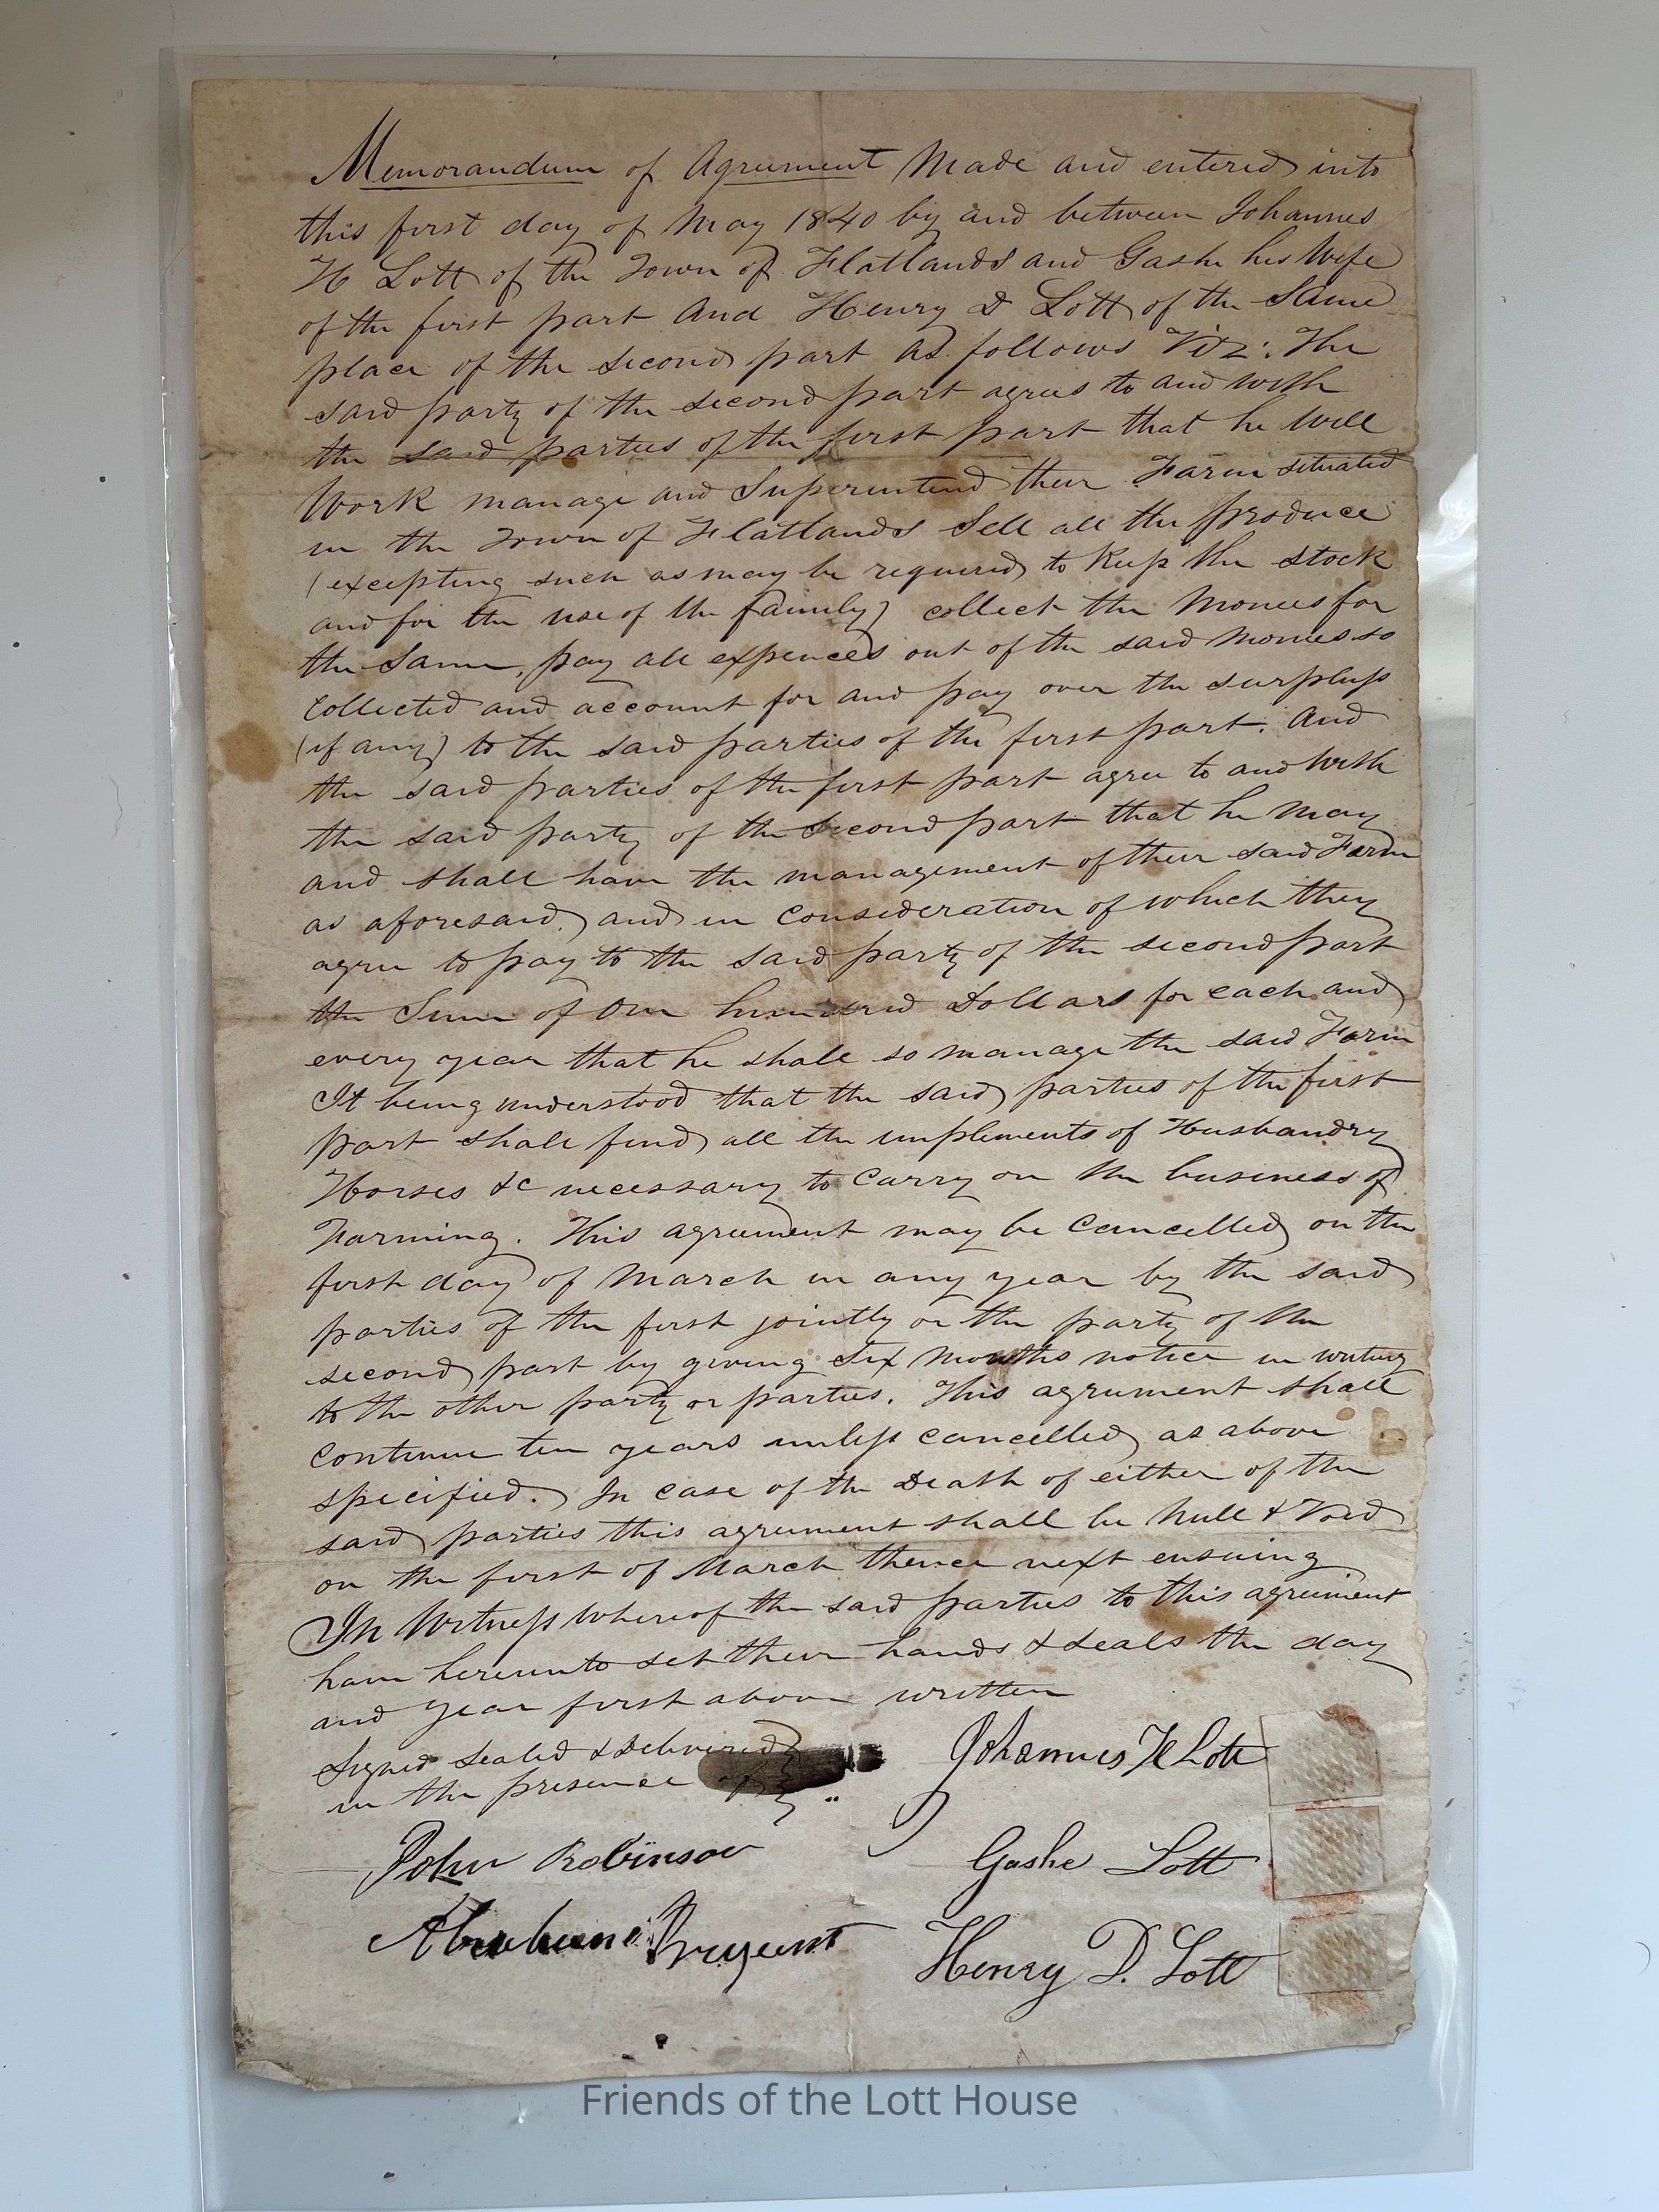 Memorandum of Agreement Made and entered into
this first day of May 1840 by and between Johannes
H Lott of the Town of Flatlands and Gashe his Wife
of the first part And Henry D Lott of the Same
place of the second part as follows Viz: The
said party of the second part agrees to and with
the said parties of the first part that he will
Work manage and Superintend their Farm situated
in the Town of Flatlands Sell all the produce
(excepting such as may be required to keep the stock
and for the use of the family) collect the Monies for
the Same, pay all expences out of the said Monies so
Collected and account for and pay over the surpluss
(if any) to the said parties of the first part. And
the said parties of the first part agree to and with
the said party of the Second part that he may
and shall have the management of their said Farm
as aforesaid. and in Consideration of which they
agree to pay to the Said party of the second part
the Sum of One hundred Dollars for each and
every year that he shall so manage the said Farm
It being understood that the said parties of the first
part shall find all the implements of Husbandry
Horses &c necessary to Carry on the business of
Farming. This agreement may be Cancelled on the
first day of March in any year by the said
parties of the first jointly or the party of the
second part by giving Six Months notice in writing
to the other party or parties. This agreement shall
Continue ten years unless cancelled as above
specified. In case of the Death of either of the
said parties this agreement shall be Null & Void
on the first of March thence next ensuing
In Witness Whereof the said parties to this agreement
have hereunto set their hands & seals the day
and year first above written
Signed Sealed & Delivered
in the presence of
Johannes H Lott
John Robinson
Gashe Lott
Abraham Bryant
Henry D. Lott
Friends of the Lott House